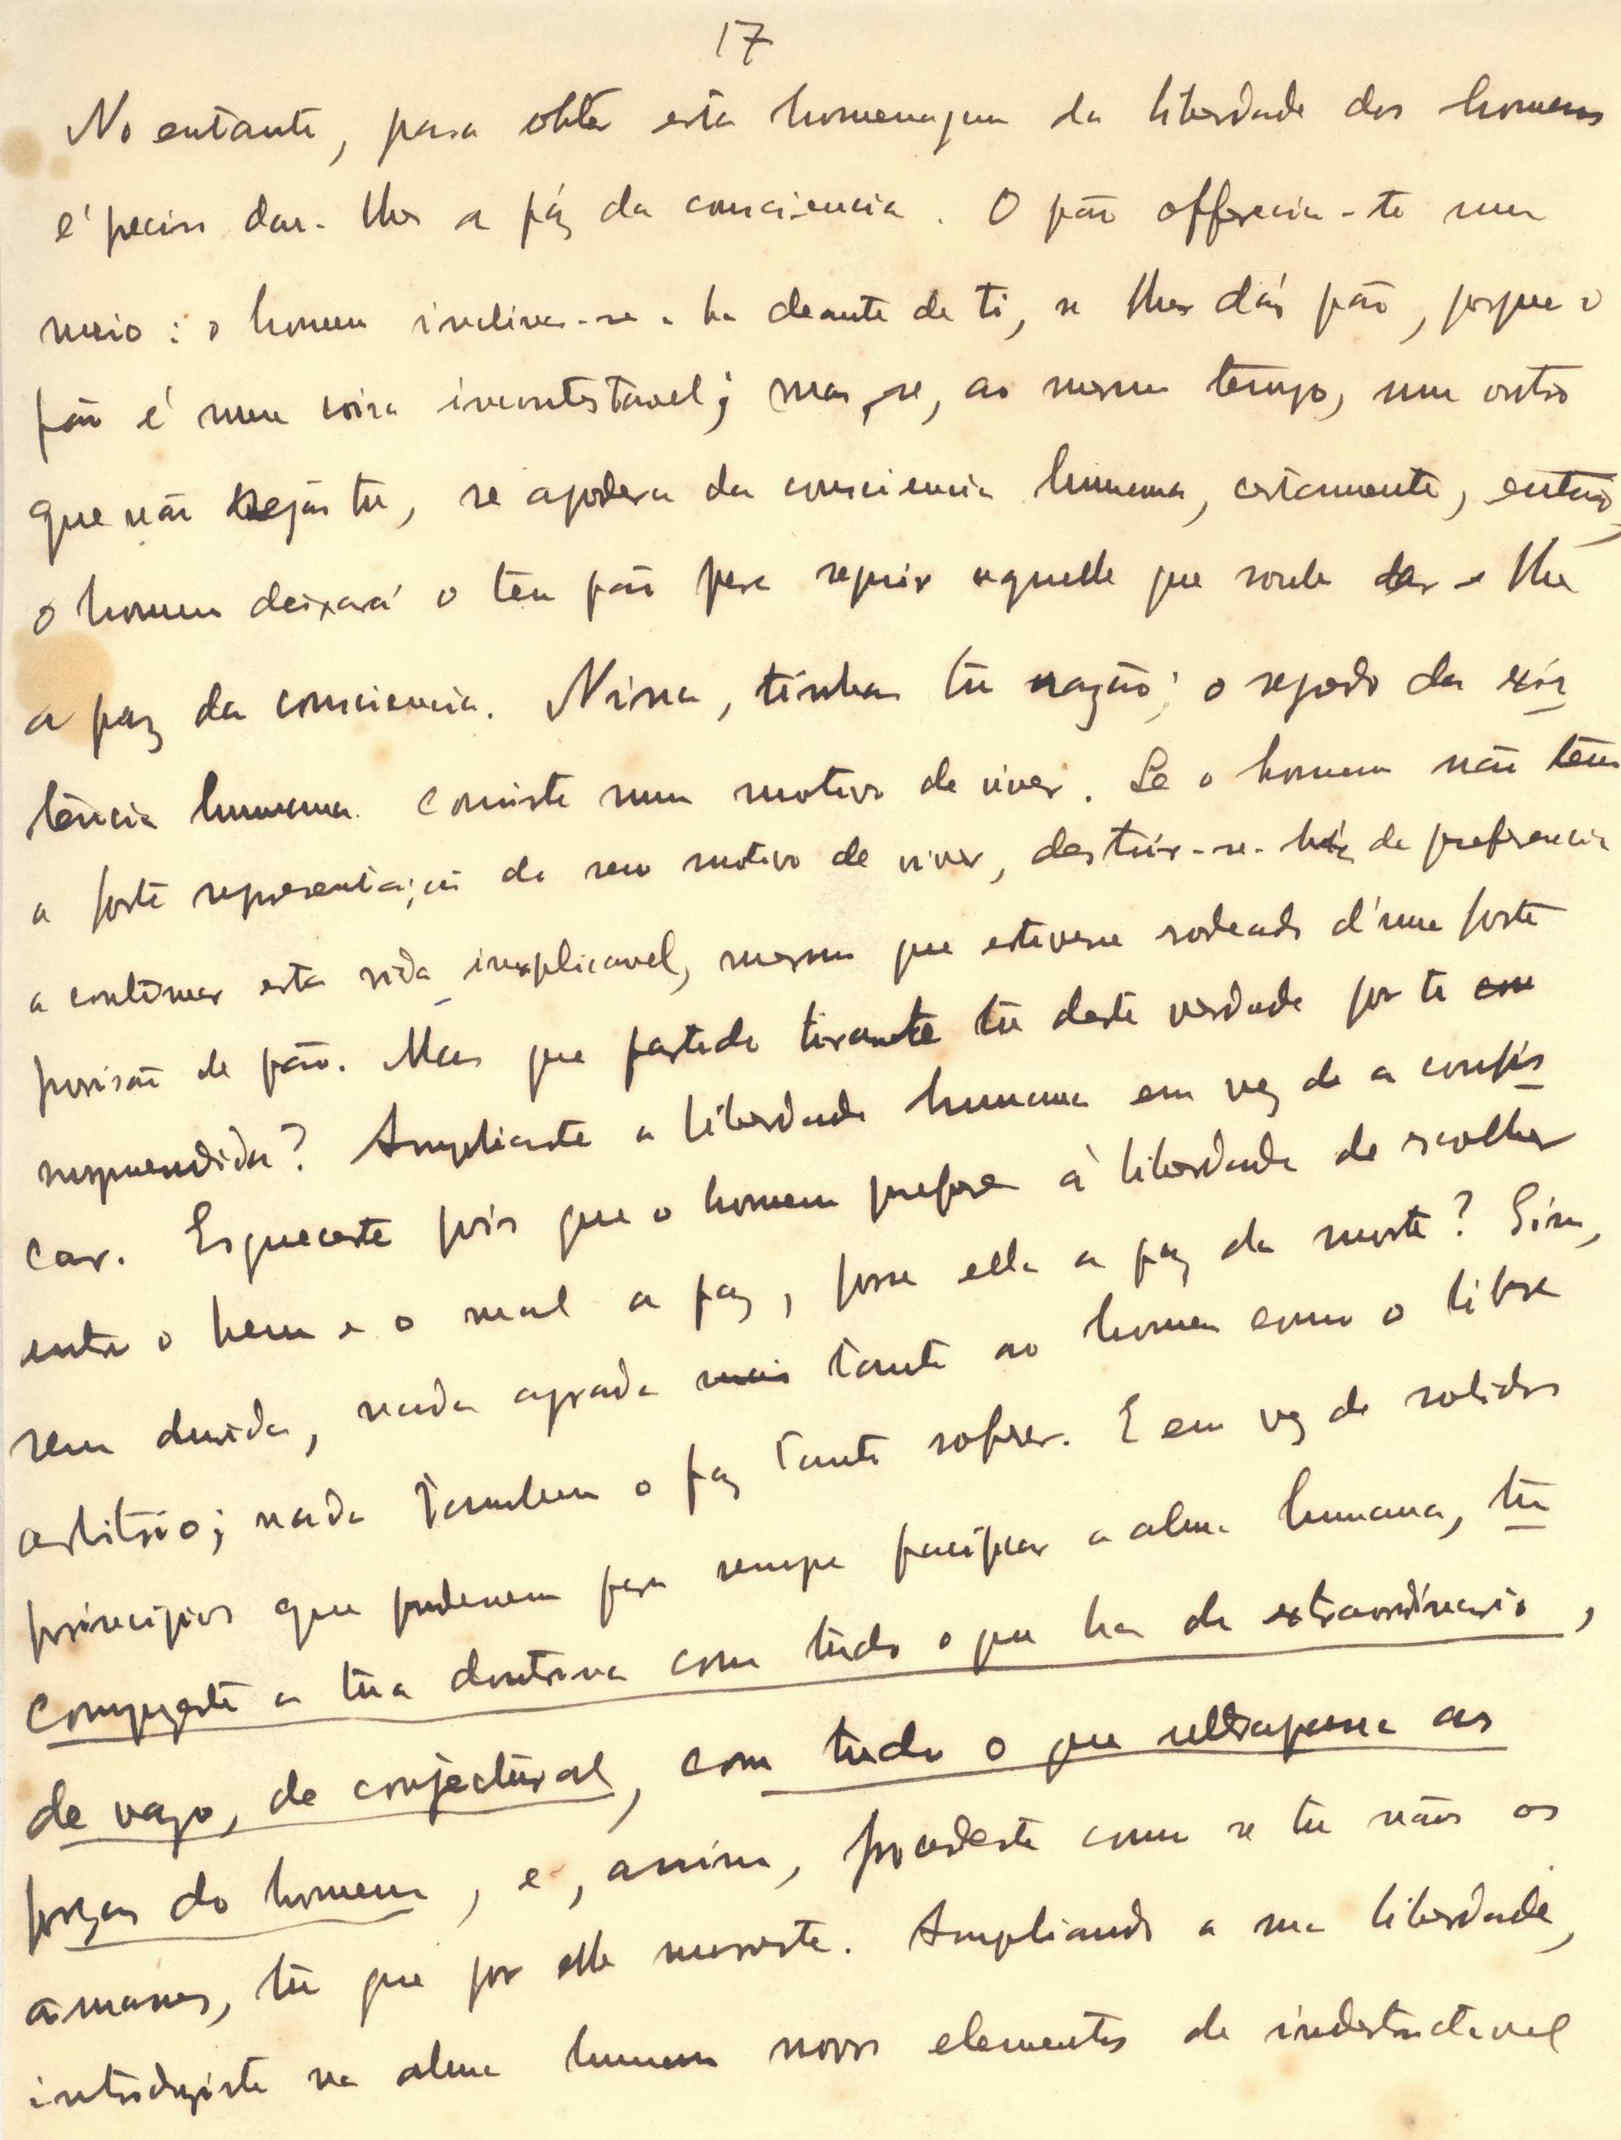 17
No entanto, para obter esta homenagem da liberdade dos homens
é preciso dar-lhes a páz da consciencia. O pão offerecia-te um
meio: o homem inclinar-se-ha deante de ti, se lhes dás pão, porque o
pão é uma coisa incontestavel; mas, se, ao mesmo tempo, um outro
que não sejas tu, se apodera da consciencia humana, certamente, então,
o homem deixará o teu pão para seguir aquelle que soube dar-lhe
a paz da consciencia. Nisso, tinhas tu razão; o segredo da exis
tencia humana consiste num motivo de viver. Se o homem não tem
a forte representação do seu motivo de viver, destruir-se-há de preferencia
a continuar esta vida inexplicavel, mesmo que estivesse rodeado d'uma forte
porisão de pão. Mas que partido tiraste tu desta verdade por ti
surpreendida? Ampliaste a liberdade humana em vez de a confis
car. Esqueceste pois que o homem prefere à liberdade de escolher
entre o bem e o mal a paz, fosse ella a paz da morte? Sim,
sem duvida, nada agrada mais tanto ao homem como o livre
arbitrio; nada tambem o faz tanto sofrer. E em vez de solidos
principios que pudessem para sempre pacificar a alma humana, tu
compuzeste a tua doutrina com tudo o que ha de extraordinario,
de vago, de conjectural, com tudo o que ultrapassa as
forças do homem, e, assim, procedeste como se tu não os
amasses, tu que por elle morreste. Ampliando a sua liberdade,
introduziste na alma humana novos elementos de indestructivel